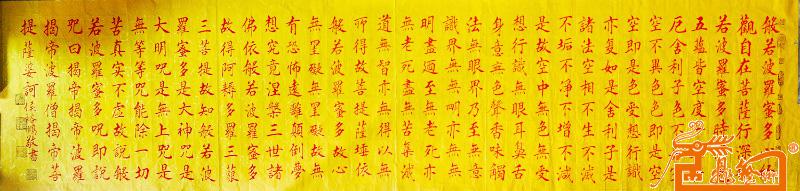 般若波羅蜜多
觀自在菩薩行深
若波羅蜜多時
五蘊皆空度
厄舍利子色不
空不異色色即是空
空即是色受想行識
亦復如是舍利子是
諸法空相不生不滅
不垢不淨不增不減
是故空中無色無受
想行識無眼耳鼻舌
身意無色聲香味觸
法無眼界乃至無意
識界無無明亦無無
明盡乃至無老死亦
無老死盡無苦集滅
道無智亦無得以無
所得故菩提薩埵依
般若波羅蜜多故心
無罣礙無罣礙故無
有恐怖遠離顛倒夢
想究竟涅槃三世諸
佛依般若波羅蜜多
故得阿耨多羅三藐
三菩提故知般若波
羅蜜多是大神咒是
大明咒是無上咒是
無等等咒能除一切
苦真実不虛故說般
若波羅蜜多咒即說
咒曰揭帝揭帝波羅
揭帝波羅僧揭帝菩
提薩婆訶
敬書